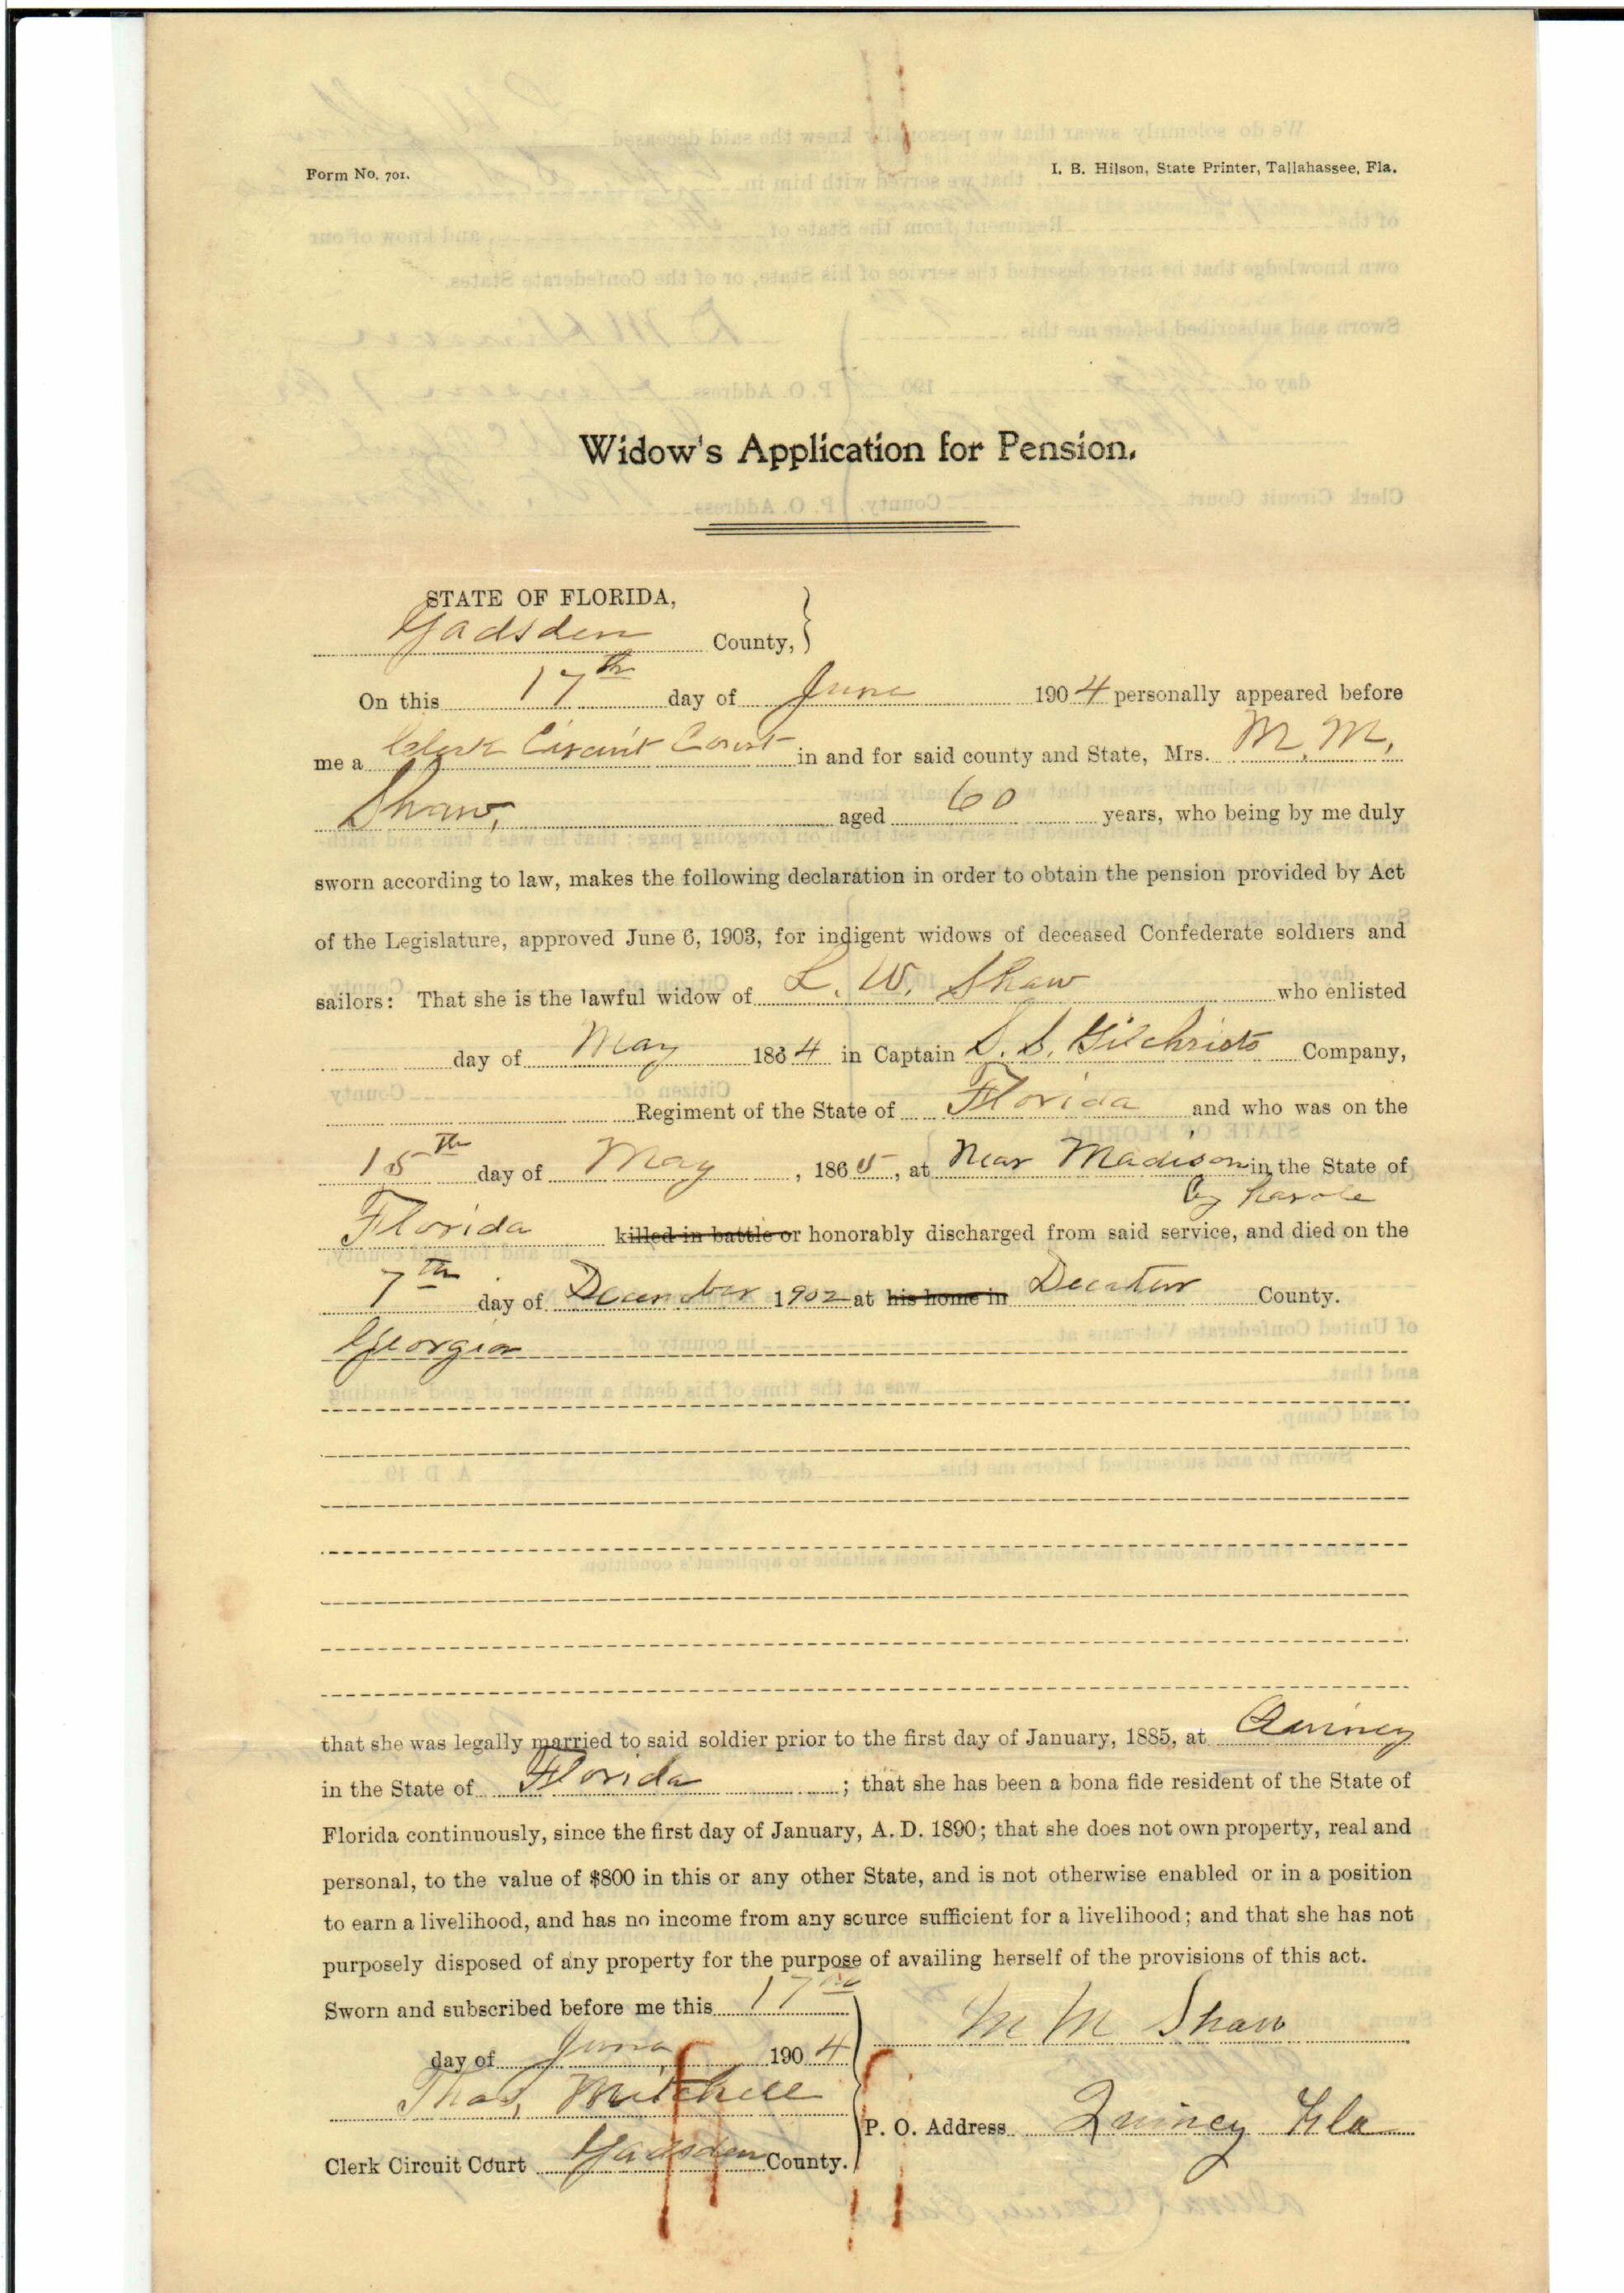 Form No. 701.
I. B. Hilson, State Printer, Tallahassee, Fla.
Widow's Application for Pension.
STATE OF FLORIDA,
Gadsden County,
On this 17th day of June 1904 personally appeared before
me a Clerk Circuit Court in and for said county and State, Mrs. M. M.
Shaw, aged 60 years, who being by me duly
sworn according to law, makes the following declaration in order to obtain the pension provided by Act
of the Legislature, approved June 6, 1903, for indigent widows of deceased Confederate soldiers and
sailors: That she is the lawful widow of L. W. Shaw who enlisted
day of May 1864 in Captain S. S. Gilchrists Company,
Regiment of the State of Florida and who was on the
15th day of May, 1865, at Near Madison in the State of
by Parole
Florida killed in battle or honorably discharged from said service, and died on the
7th day of December 1902 at his home in Decatur County.
Georgia
that she was legally married to said soldier prior to the first day of January, 1885, at Quincy
in the State of Florida; that she has been a bona fide resident of the State of
Florida continuously, since the first day of January, A. D. 1890; that she does not own property, real and
personal, to the value of $800 in this or any other State, and is not otherwise enabled or in a position
to earn a livelihood, and has no income from any source sufficient for a livelihood; and that she has not
purposely disposed of any property for the purpose of availing herself of the provisions of this act.
Sworn and subscribed before me this 17th
M M Shaw
day of June, 1904
Thos. Mitchell
P. O. Address Quincy Fla
Clerk Circuit Court Gadsden County.